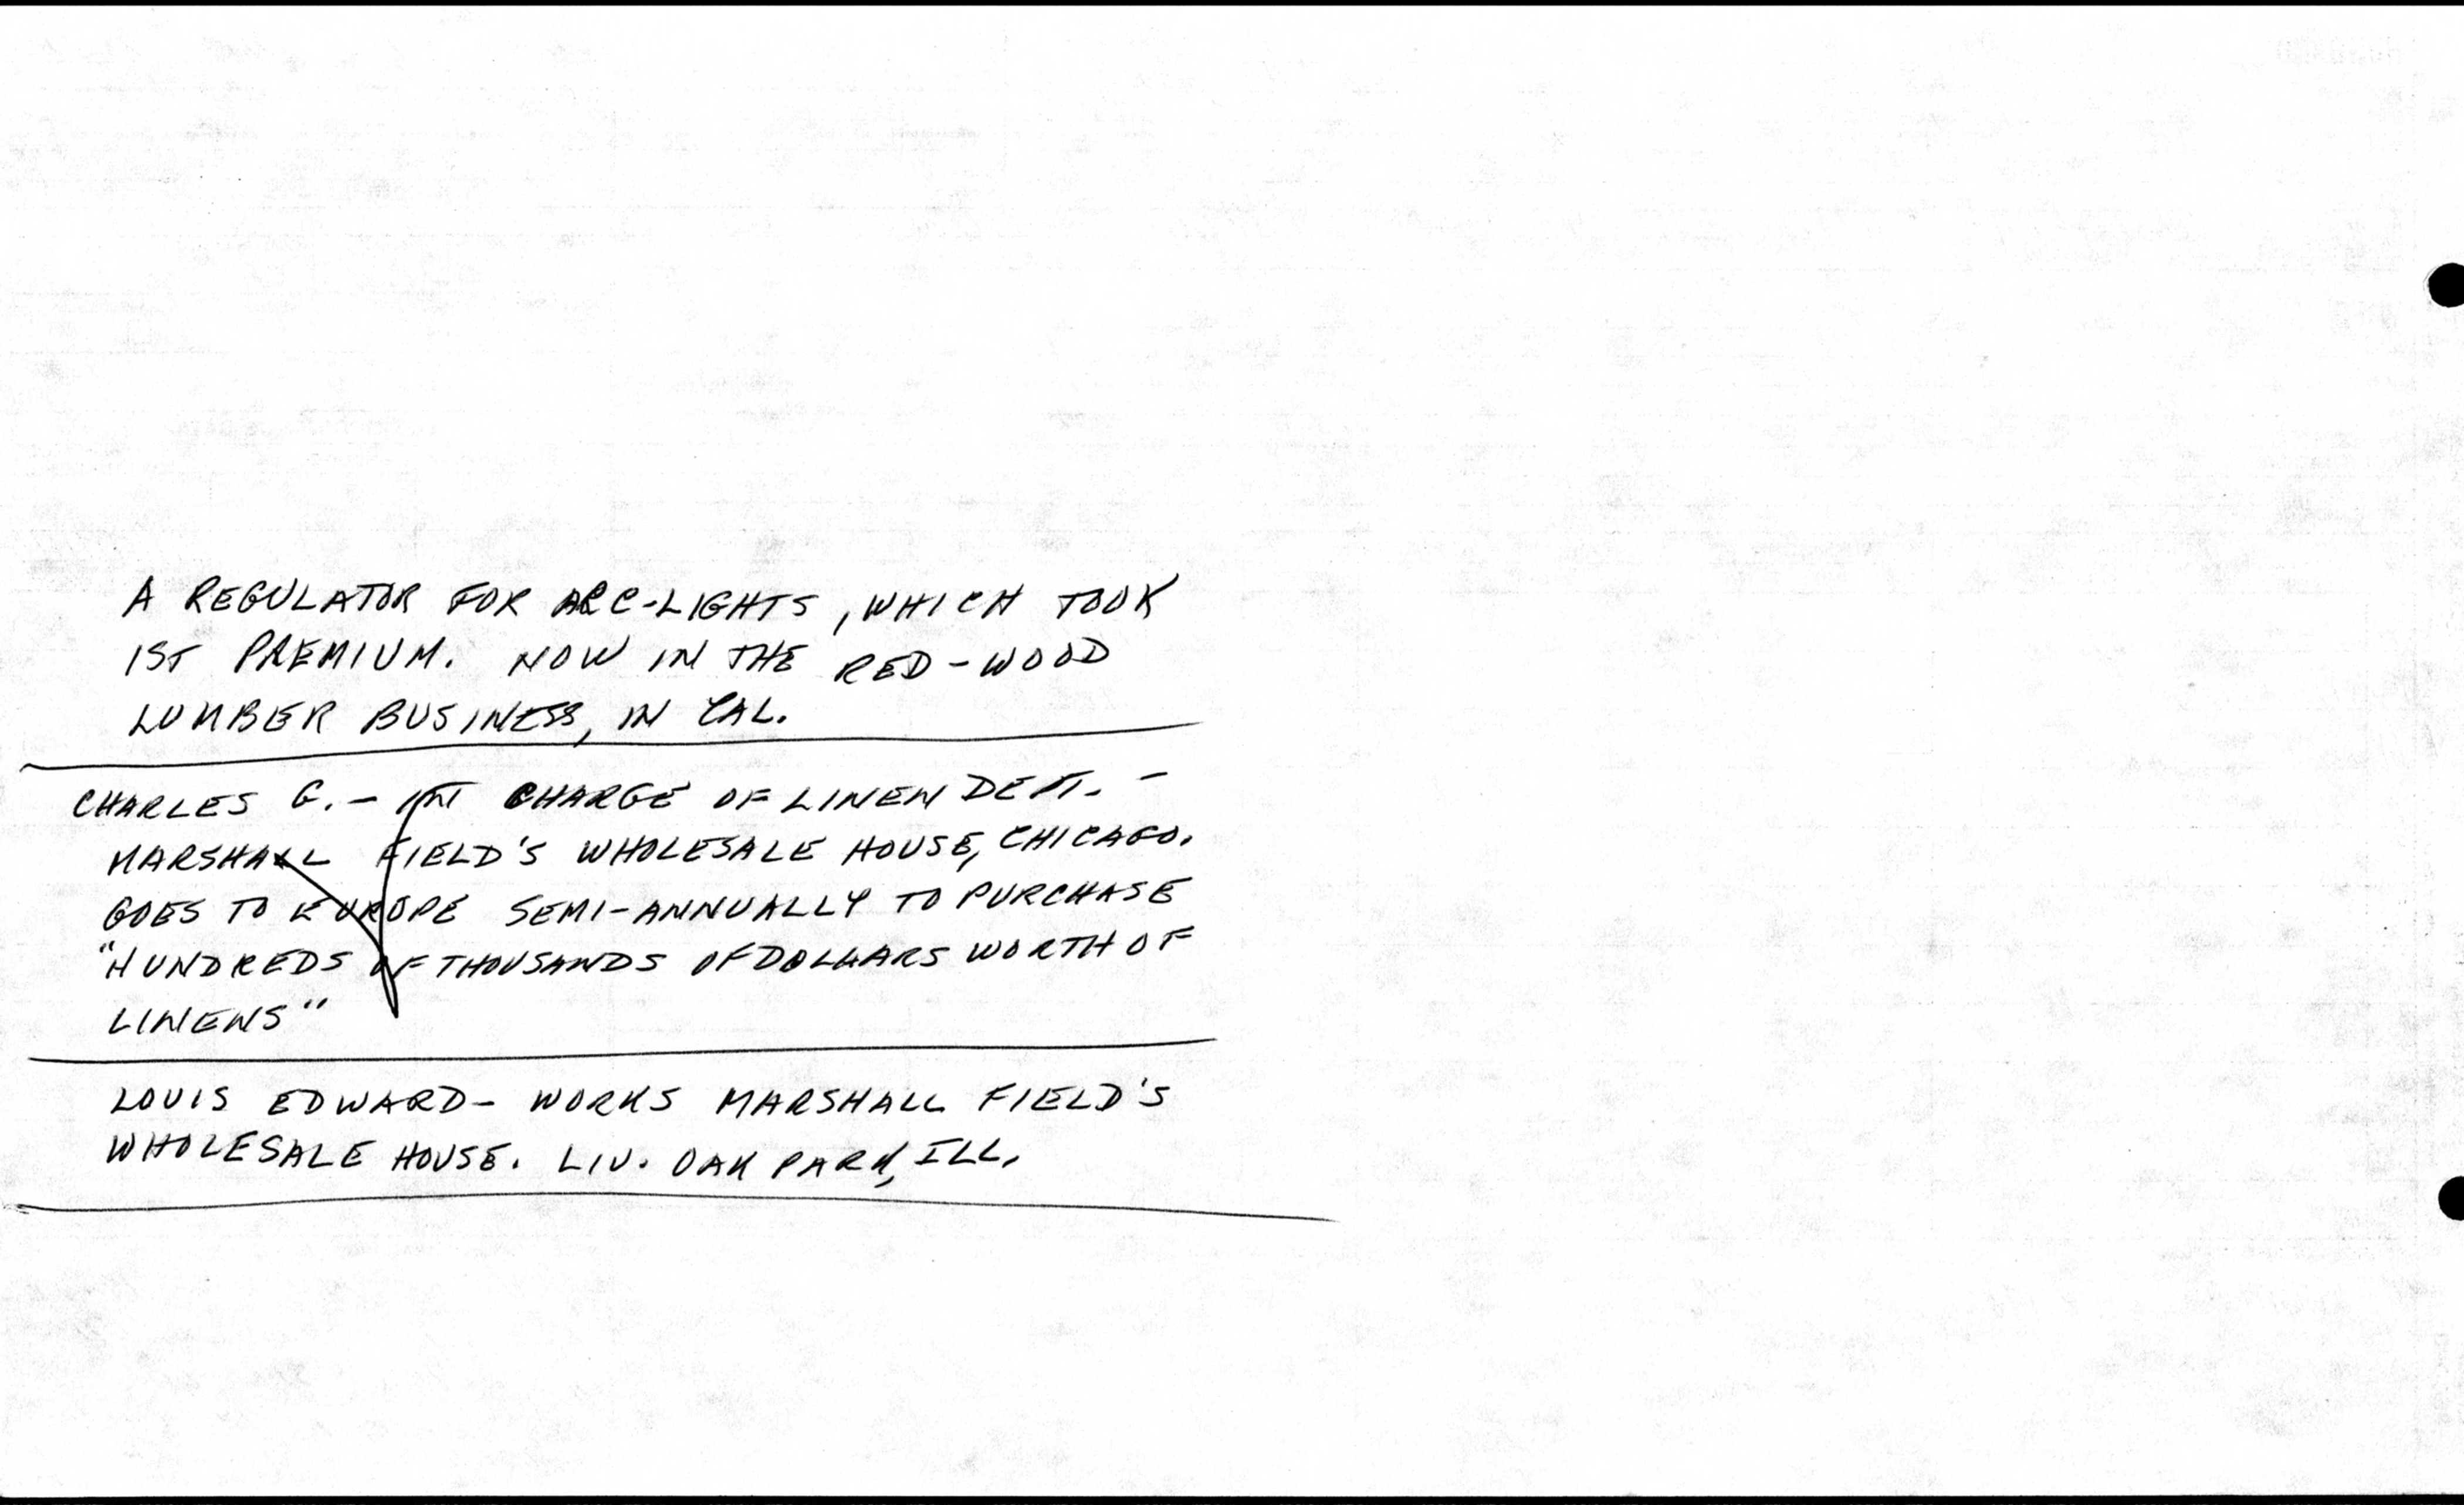 A REGULATOR FOR ARC-LIGHTS, WHICH TOOK
1ST PREMIUM. NOW IN THE RED-WOOD
LUMBER BUSINESS, IN CAL.
CHARLES G. - IN CHARGE OF LINEN DEPT. -
MARSHALL FIELD'S WHOLESALE HOUSE, CHICAGO.
GOES TO EUROPE SEMI-ANNUALLY TO PURCHASE
"HUNDREDS OF THOUSANDS OF DOLLARS WORTH OF
LINENS"
LOUIS EDWARD- WORKS MARSHALL FIELD'S
WHOLESALE HOUSE. LIV. OAK PARK, ILL.